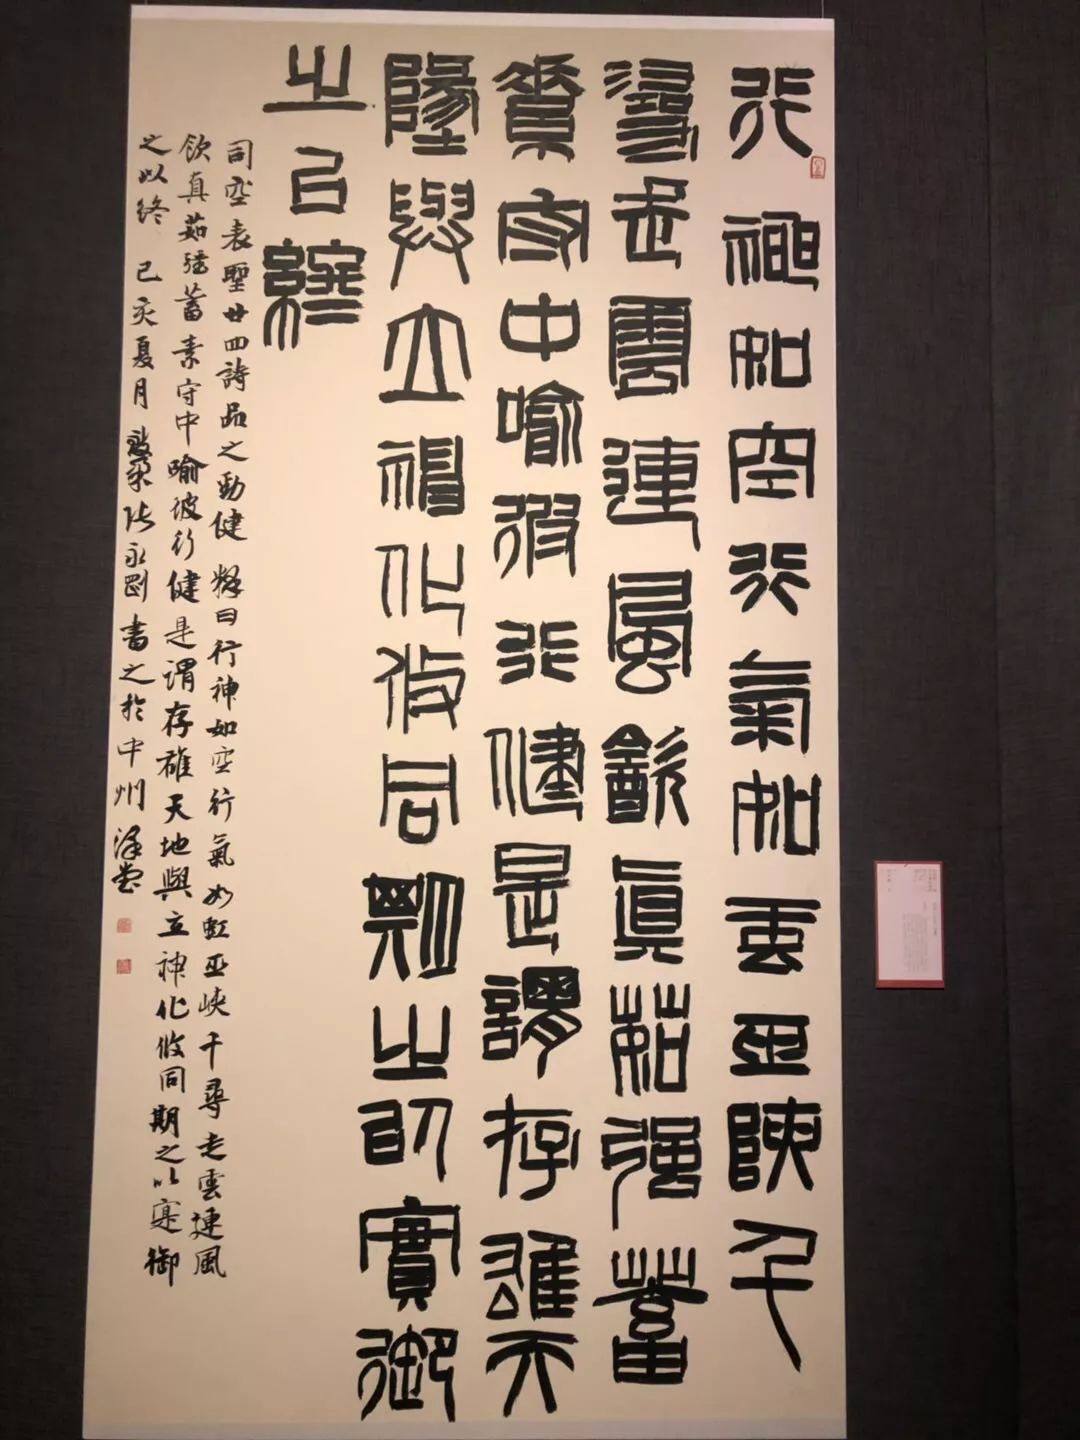 行神如空行氣如虹巫陜千
尋走雲連風飲真茹強蓄
素守中喻彼行健是謂存雄天
地與立神化攸同期之以實御
之以終
司空表聖廿四詩品之勁健 曰行神如空行氣如虹巫峽千尋走雲連風
飲真茹強蓄素守中喻彼行健是謂存雄天地與立神化攸同期之以寔御
之以終 己亥夏月 張永剛書之於中州